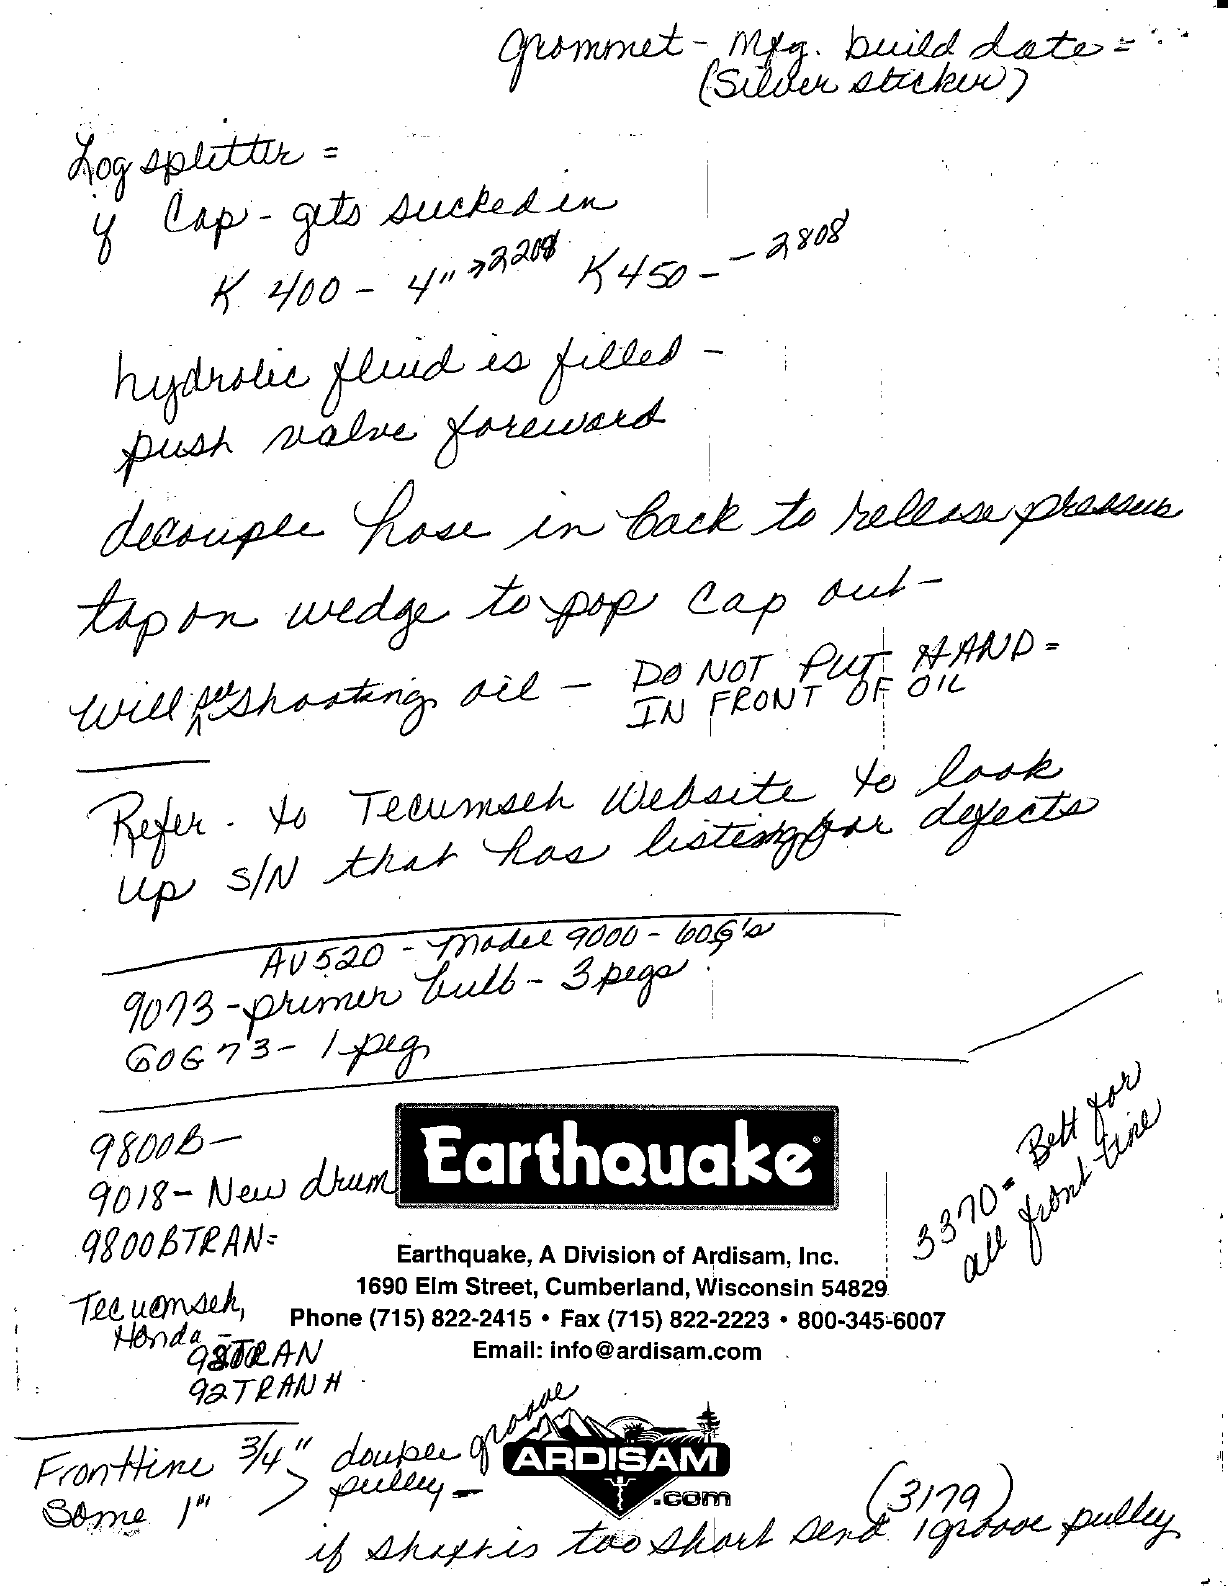 grommet - Mfg. build date =
(Silver sticker)
Log splitter =
if Cap - gets sucked in
K 400 - 4" → 2208 K450 - - 2808
hydrolic fluid is filled -
push valve foreward
decouple hose in back to release pressure
tap on wedge to pop cap out -
will see shooting oil - DO NOT PUT HAND =
IN FRONT OF OIL
Refer - to Tecumseh Website to look
up S/N that has listing for defects
AV520 - Model 9000 - 60G's
9073 - primer bulb - 3 pegs
60G73 - 1 peg
9800B -
9018 - New drum
9800BTRAN =
Tecuomseh,
Honda -
TRAN
92TRANH
Earthquake®
3370 = Belt for
all front tine
Earthquake, A Division of Ardisam, Inc.
1690 Elm Street, Cumberland, Wisconsin 54829
Phone (715) 822-2415 • Fax (715) 822-2223 • 800-345-6007
Email: info@ardisam.com
Fronttine 3/4" > double groove
Some 1" pulley -
ARDISAM
.com
(3179)
if shaft is too short send 1 groove pulley